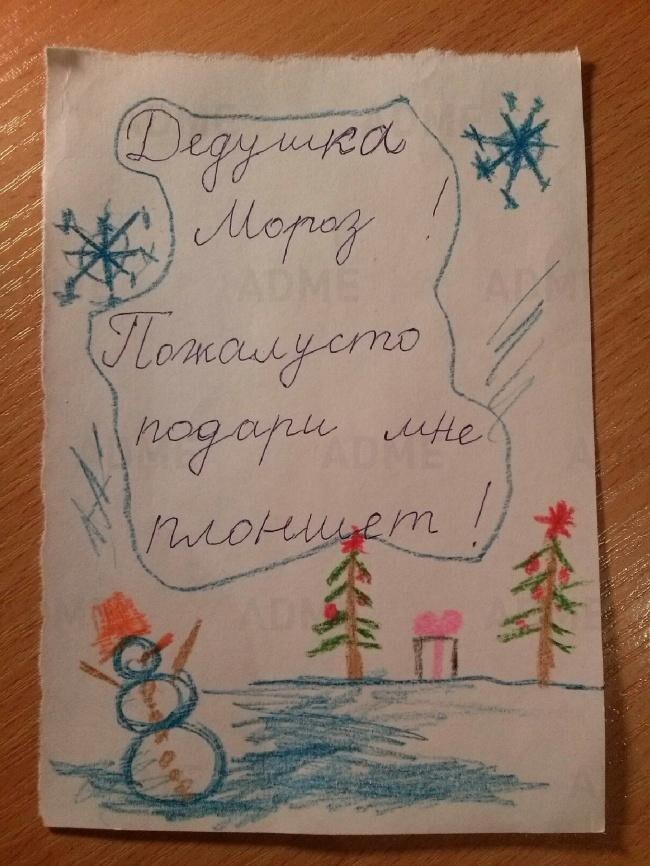 Дедушка
Мороз !
Пожалусто
подари мне
плоншет !
ADME
ADME
ADME
ADME
ADME
ADME
ADME